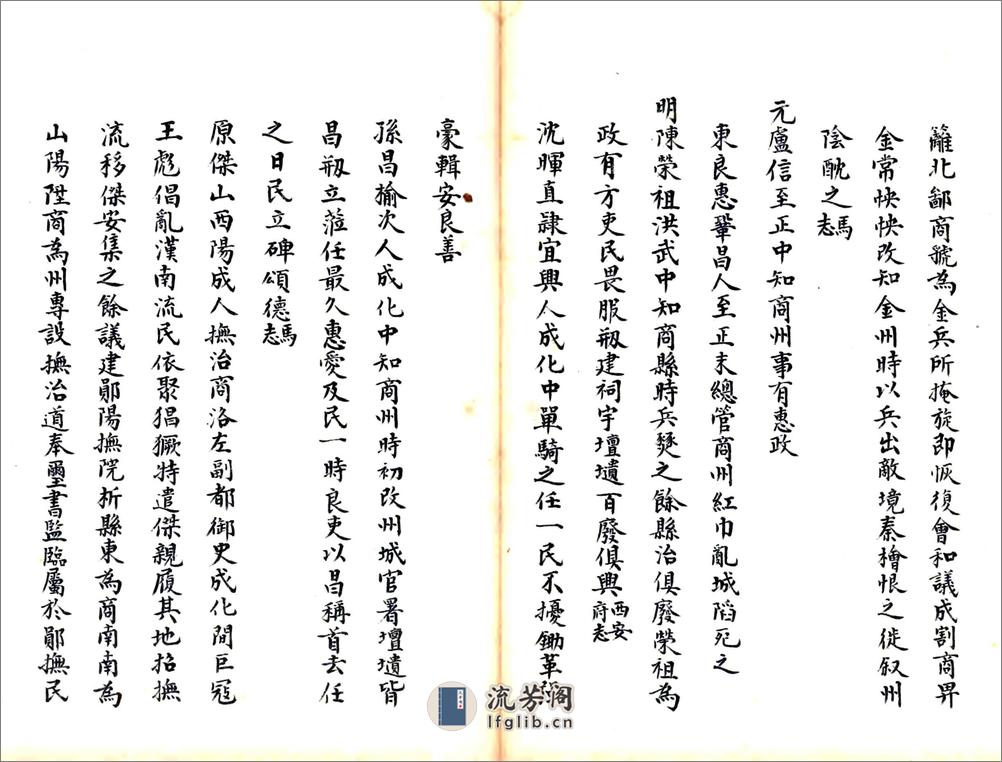 籬北鄙商號為金兵所掩旋即恢復會和議成割商畀
金常怏怏改知金州時以兵出敵境秦檜恨之徙叙州
陰酖之馬志
元盧信至正中知商州事有惠政
東良惠鞏昌人至正末總管商州紅巾亂城陷死之
明陳榮祖洪武中知商縣時兵燹之餘縣治俱廢榮祖為
政有方吏民畏服剏建祠宇壇壝百廢俱興西安府志
沈暉直隸宜興人成化中單騎之任一民不擾鋤革強
豪輯安良善
孫昌榆次人成化中知商州時初改州城官署壇壝皆
昌剏立蒞任最久惠愛及民一時良吏以昌稱首去任
之日民立碑頌德馬志
原傑山西陽成人撫治商洛左副都御史成化間巨寇
王彪倡亂漢南流民依聚猖獗特遣傑親履其地招撫
流移傑安集之餘議建鄖陽撫院折縣東為商南南為
山陽陞商為州專設撫治道奉璽書監臨屬於鄖撫民
流芳阁
lfglib.cn